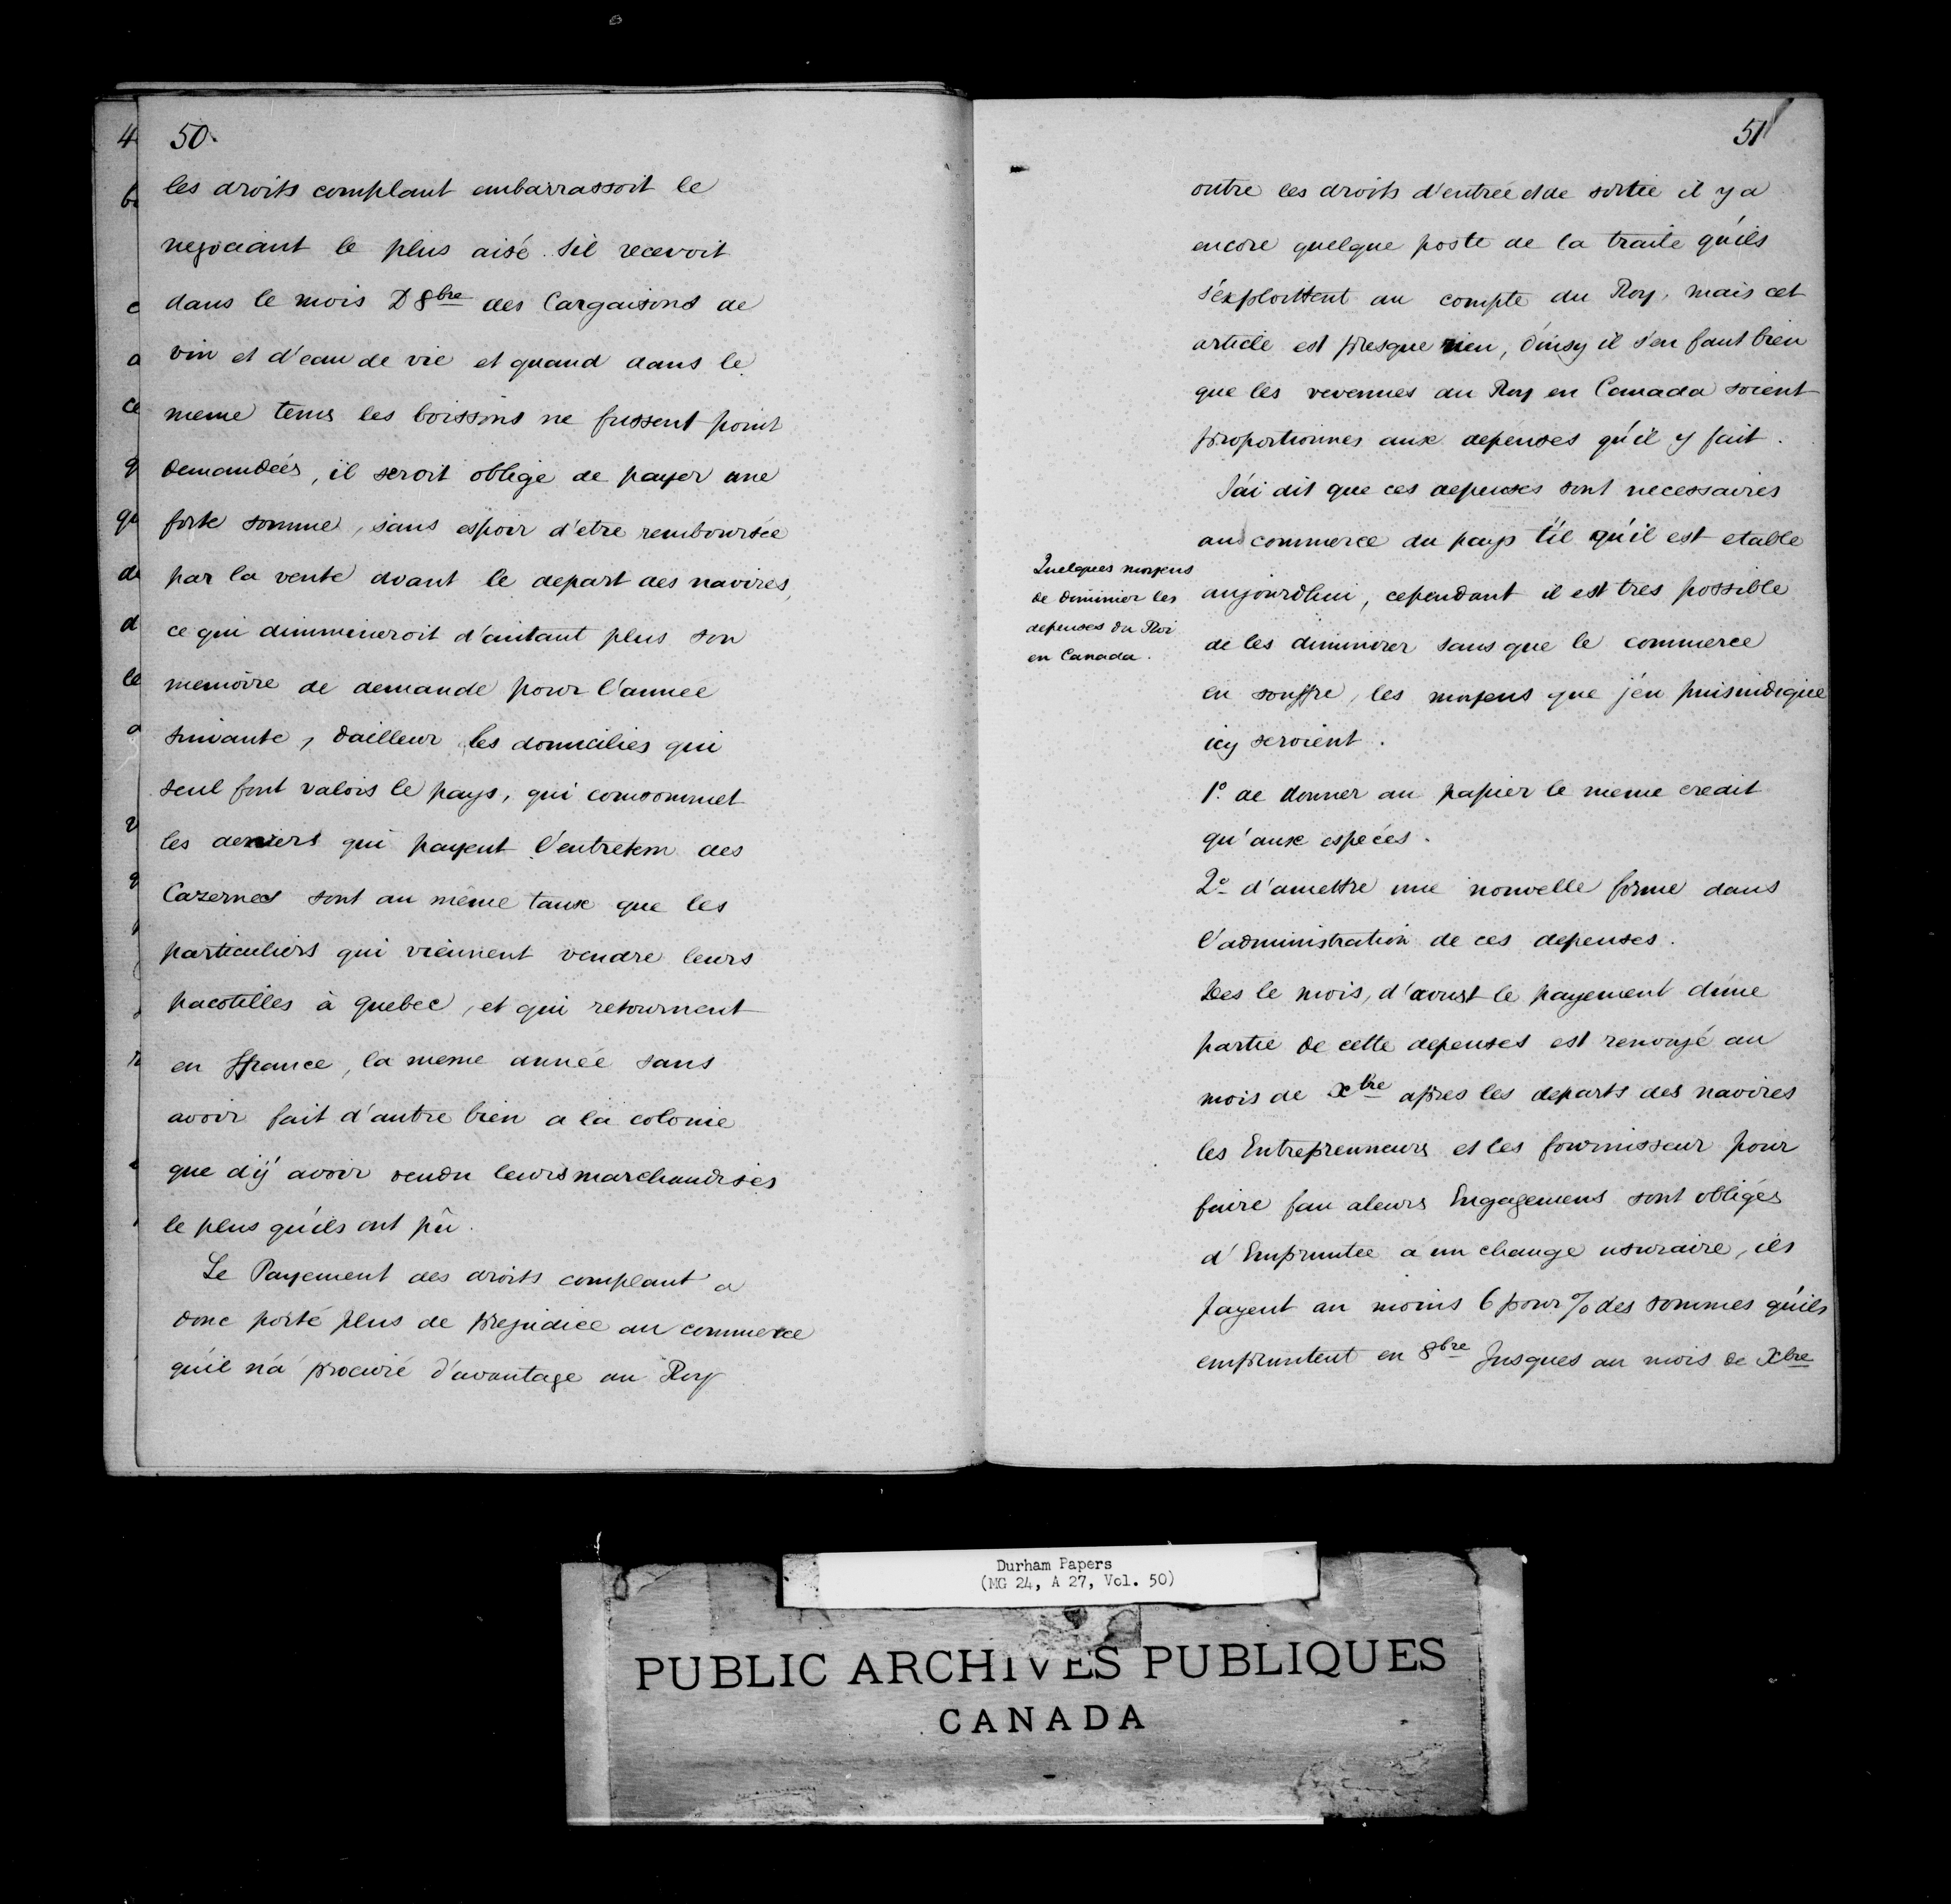 50.
les droits complant embarrassoit le
negociant le plus aisé. sil recevoit
dans le mois D 8bre des Cargaisons de
vin et d'eau de vie et quand dans le
meme tems les boissons ne fussent point
demandeés, il seroit oblige de payer une
forte somme, sans espoir d'etre remboursée
par la vente avant le depart des navires,
ce qui dimmineroit d'autant plus son
memoire de demande pour l'annee
suivante, dailleur les domicilies qui
seul font valois le pays, qui consomment
les deniers qui payent l'entretem des
Cazernes sont au même taux que les
particuliers qui viennent vendre leurs
pacotilles à quebec, et qui retournent
en ffrance, la meme année sans
avoir fait d'autre bien a la colonie
que d'ÿ avoir vendu leurs marchandises
le plus qu'ils ont pû.
Le Payement des droits complant a
donc porté plus de prejudice au commerce
qu'il n'a procuré d'avantage au Roy
51
outre les droits d'entrée et de sortie il y a
encore quelque poste de la traite qu'ils
s'exploittent au compte du Roy, mais cet
article est presque rien, d'insy il s'en faut bien
que les revennes du Roy en Canada soient
proportionnes aux depenses qu'il y fait.
J'ai dit que ces depenses sont necessaires
au commerce du pays t'il qu'il est etable
Quelques moyens
de diminier les
depenses du Roi
en Canada.
aujourdhui, cependant il est tres possible
de les diminuer sans que le commerce
en souffre, les moyens que j'en puis indique
icy seroient.
1o. de donner au papier le meme credit
qu'aux espéces.
2o d'amettre une nouvelle forme dans
l'administration de ces depenses.
Des le mois, d'aoust le payement d'une
partie de cette depenses est renvoyé au
mois de xbre apres les departs des navires
les Entreprenneurs et les fournisseur pour
faire fau aleurs Engagemens sont obligés
d'Empruntee a un change usuraire, ils
payent au moins 6 pour % des sommes qu'ils
empruntent en 8bre Jusques au mois de Xbre
Durham Papers
(MG 24, A 27, Vol. 50)
PUBLIC ARCHIVES PUBLIQUES
CANADA